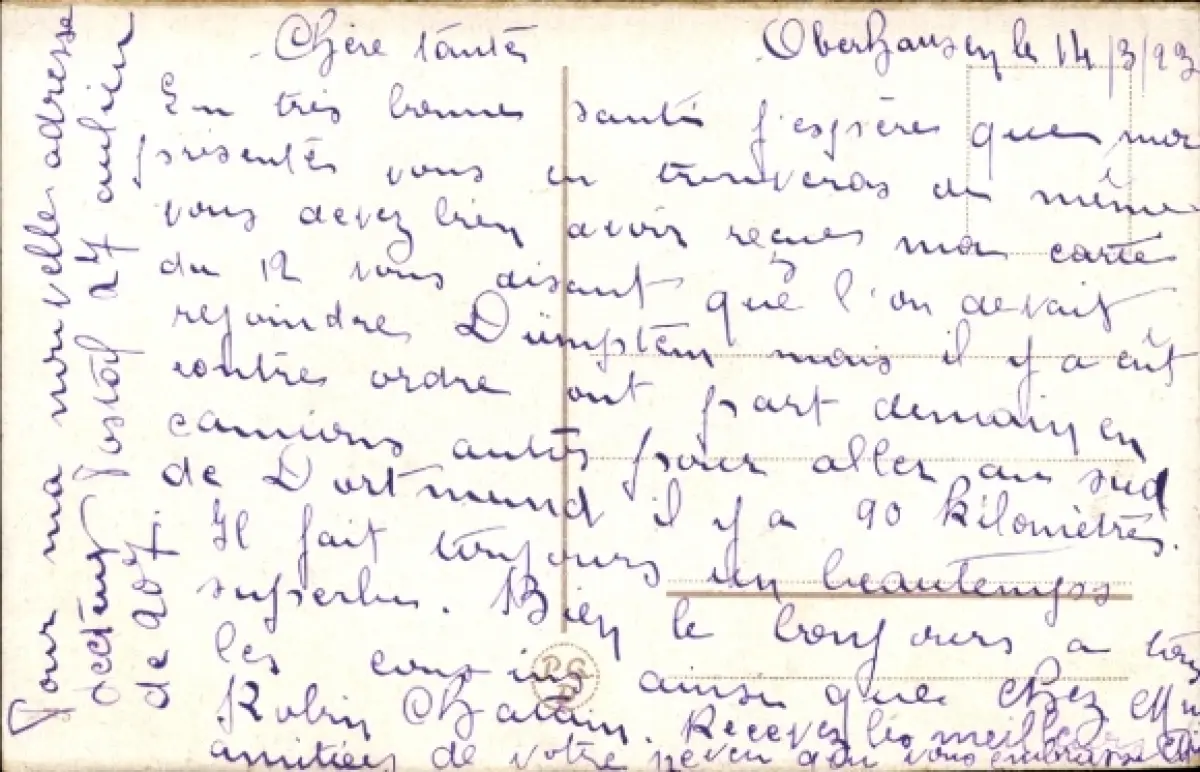 Oberhausen le 14/3/23
Chère tante
En très bonnes santé j'espères que ma
présentes vous en trouveras de même
vous devez bien avoir reçues ma carte
du 12 vous disant que l'on devait
rejoindres Dümpten mais il y a eût
contres ordre ont part demain en
camions autos pour aller au sud
de Dortmund il y a 90 kilomètrés.
Il fait toujours un beautemps
superbes. Bien le bonjours a tous
les cousins ainsi que chez
Robin Chatain. Recevez les meilleures
amitiées de votre neveu qui vous embrasse
Pour ma nouvelle adresse
secteur Postal 27 au lieu
de 207.
PGD